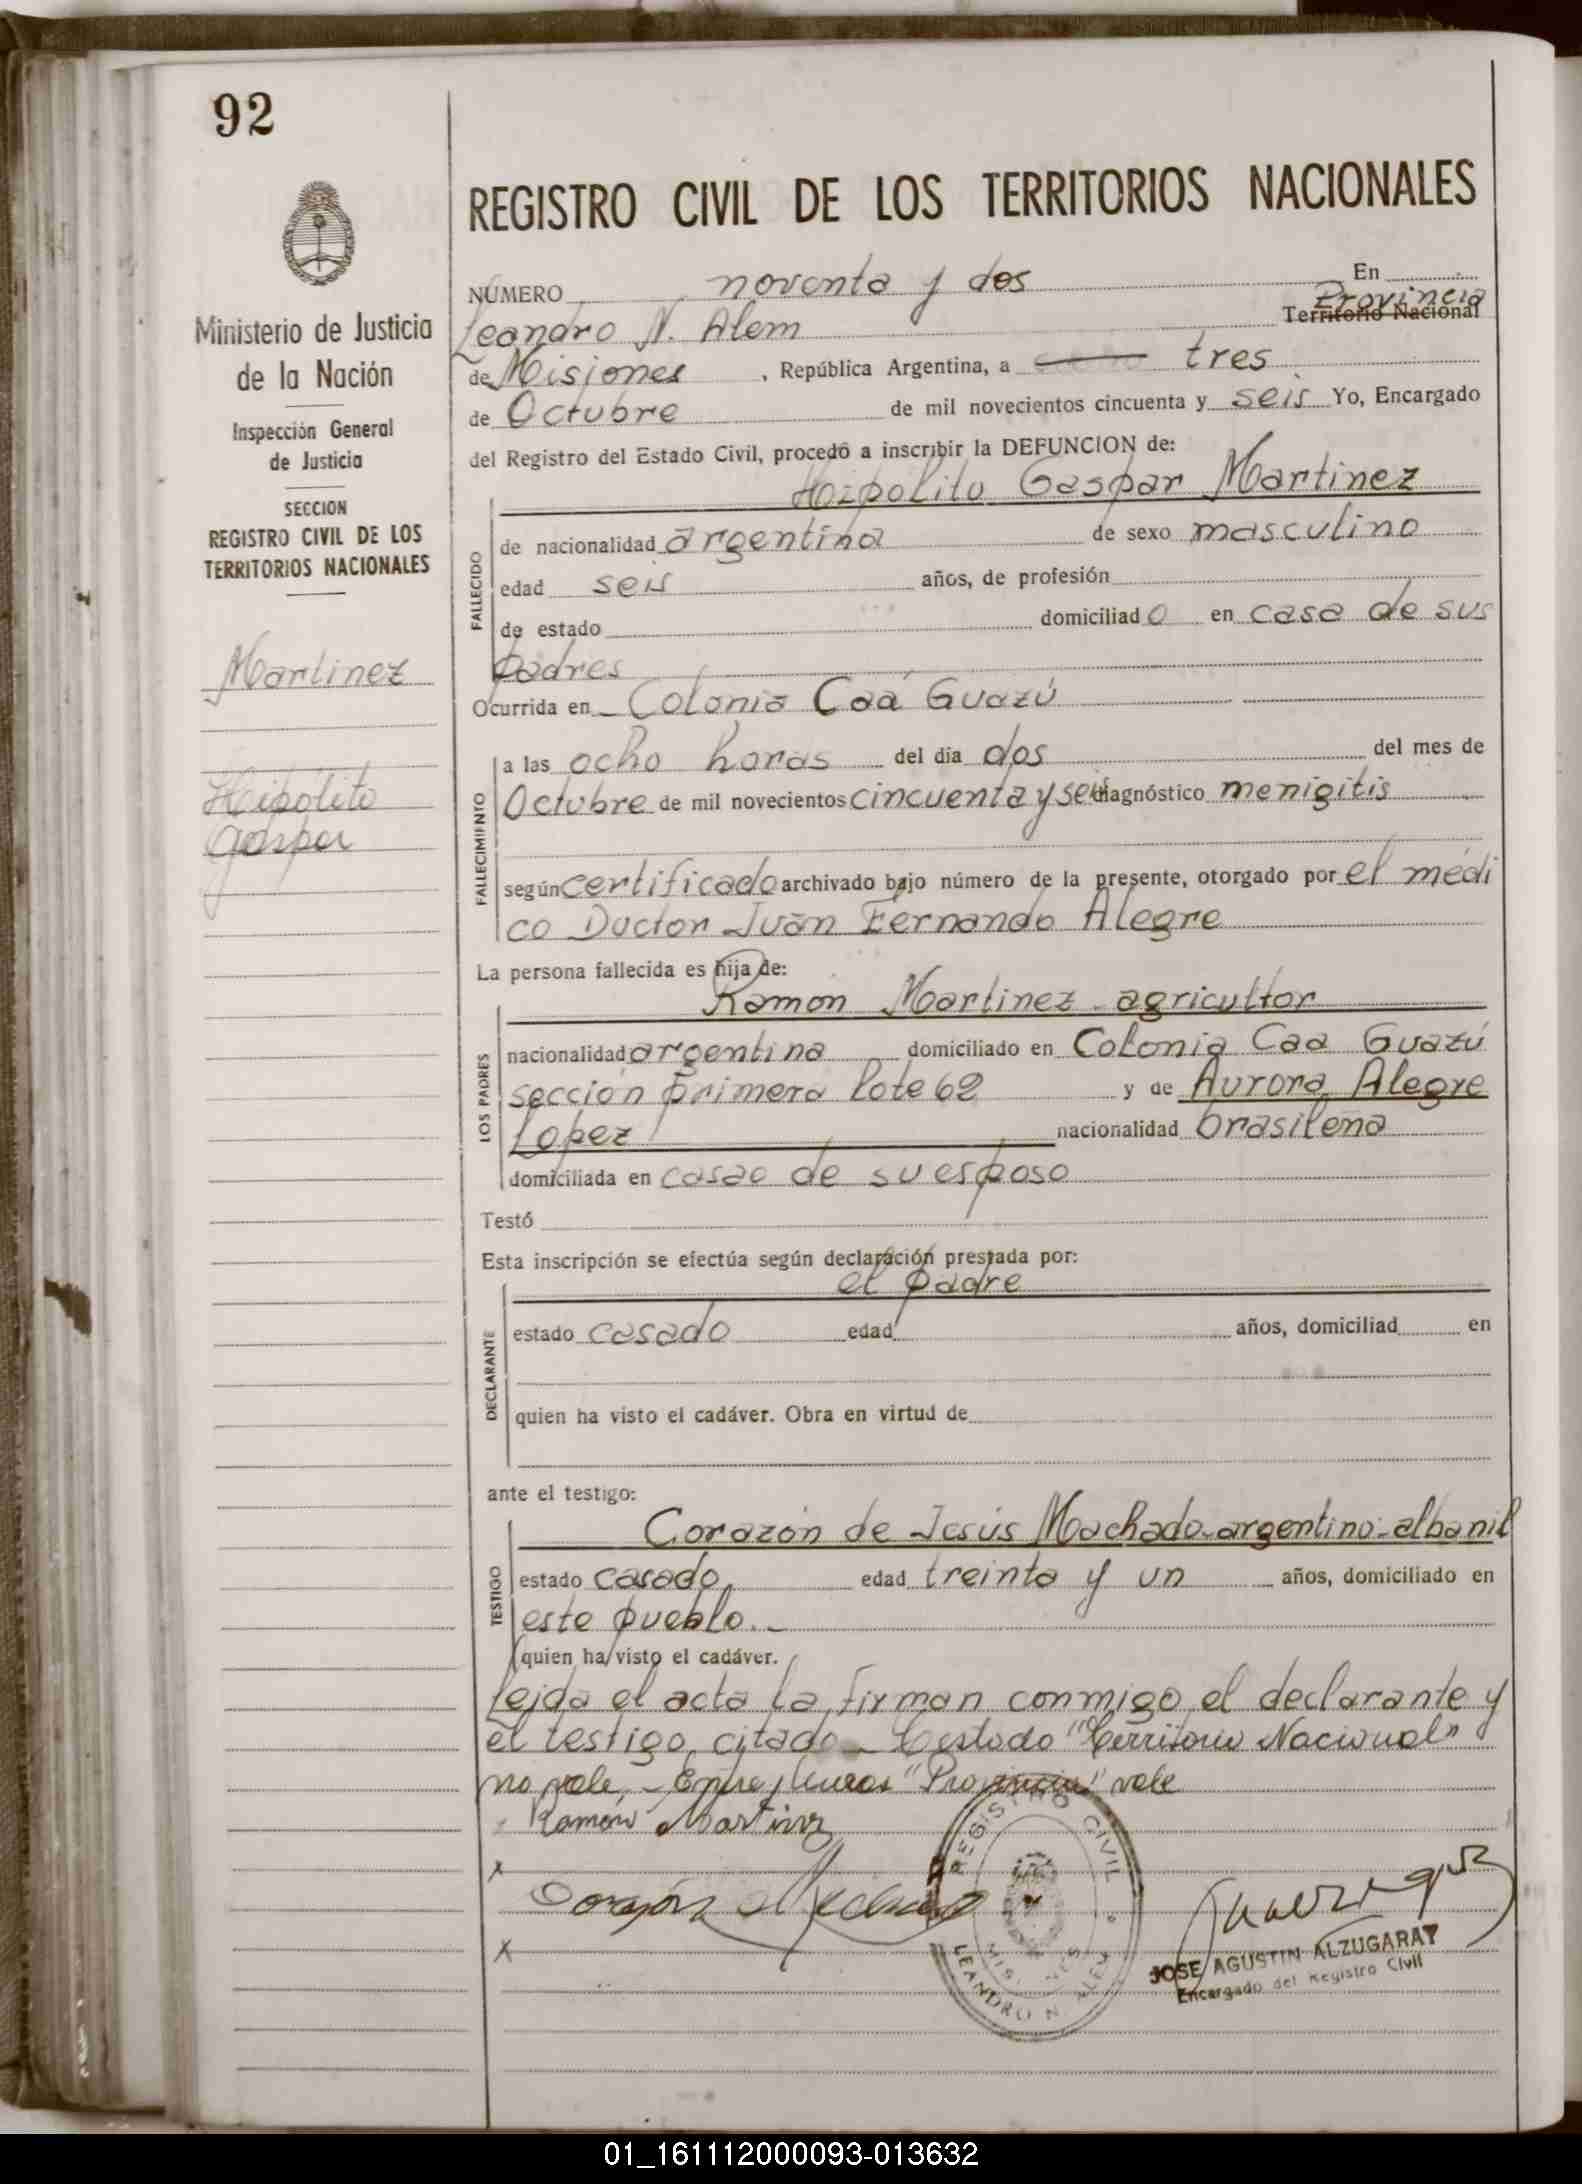 92
Ministerio de Justicia
de la Nación
Inspección General
de Justicia
SECCION
REGISTRO CIVIL DE LOS
TERRITORIOS NACIONALES
Martinez
Hipólito
Gaspar
REGISTRO CIVIL DE LOS TERRITORIOS NACIONALES
NÚMERO noventa y dos En
Provincia
Leandro N. Alem Territorio Nacional
de Misiones, República Argentina, a tres
de Octubre de mil novecientos cincuenta y seis Yo, Encargado
del Registro del Estado Civil, procedo a inscribir la DEFUNCION de:
Hipolito Gaspar Martinez
FALLECIDO
de nacionalidad argentina de sexo masculino
edad seis años, de profesión
de estado domiciliado en casa de sus
padres
Ocurrida en Colonia Caá Guazú
FALLECIMIENTO
a las ocho horas del día dos del mes de
Octubre de mil novecientos cincuenta y seis diagnóstico menigitis
según certificado archivado bajo número de la presente, otorgado por el médi
co Doctor Juan Fernando Alegre
La persona fallecida es hija de:
Ramon Martinez - agricultor
LOS PADRES
nacionalidad argentina domiciliado en Colonia Caa Guazú
sección primera lote 62 y de Aurora Alegre
Lopez nacionalidad brasileña
domiciliada en casa de su esposo
Testó
Esta inscripción se efectúa según declaración prestada por:
el padre
DECLARANTE
estado casado edad años, domiciliad en
quien ha visto el cadáver. Obra en virtud de
ante el testigo:
Corazón de Jesús Machado - argentino - albanil
TESTIGO
estado casado, edad treinta y un años, domiciliado en
este pueblo.-
quien ha visto el cadáver.
Leida el acta la firman conmigo el declarante y
el testigo citado - Testado "Territorio Nacional"
no vale. - Entre lineas "Provincia" vale
Ramón Martinez
x
Corazón Machado
x
REGISTRO CIVIL
MISIONES
LEANDRO N. ALEM
JOSE AGUSTIN ALZUGARAY
Encargado del Registro Civil
01_161112000093-013632